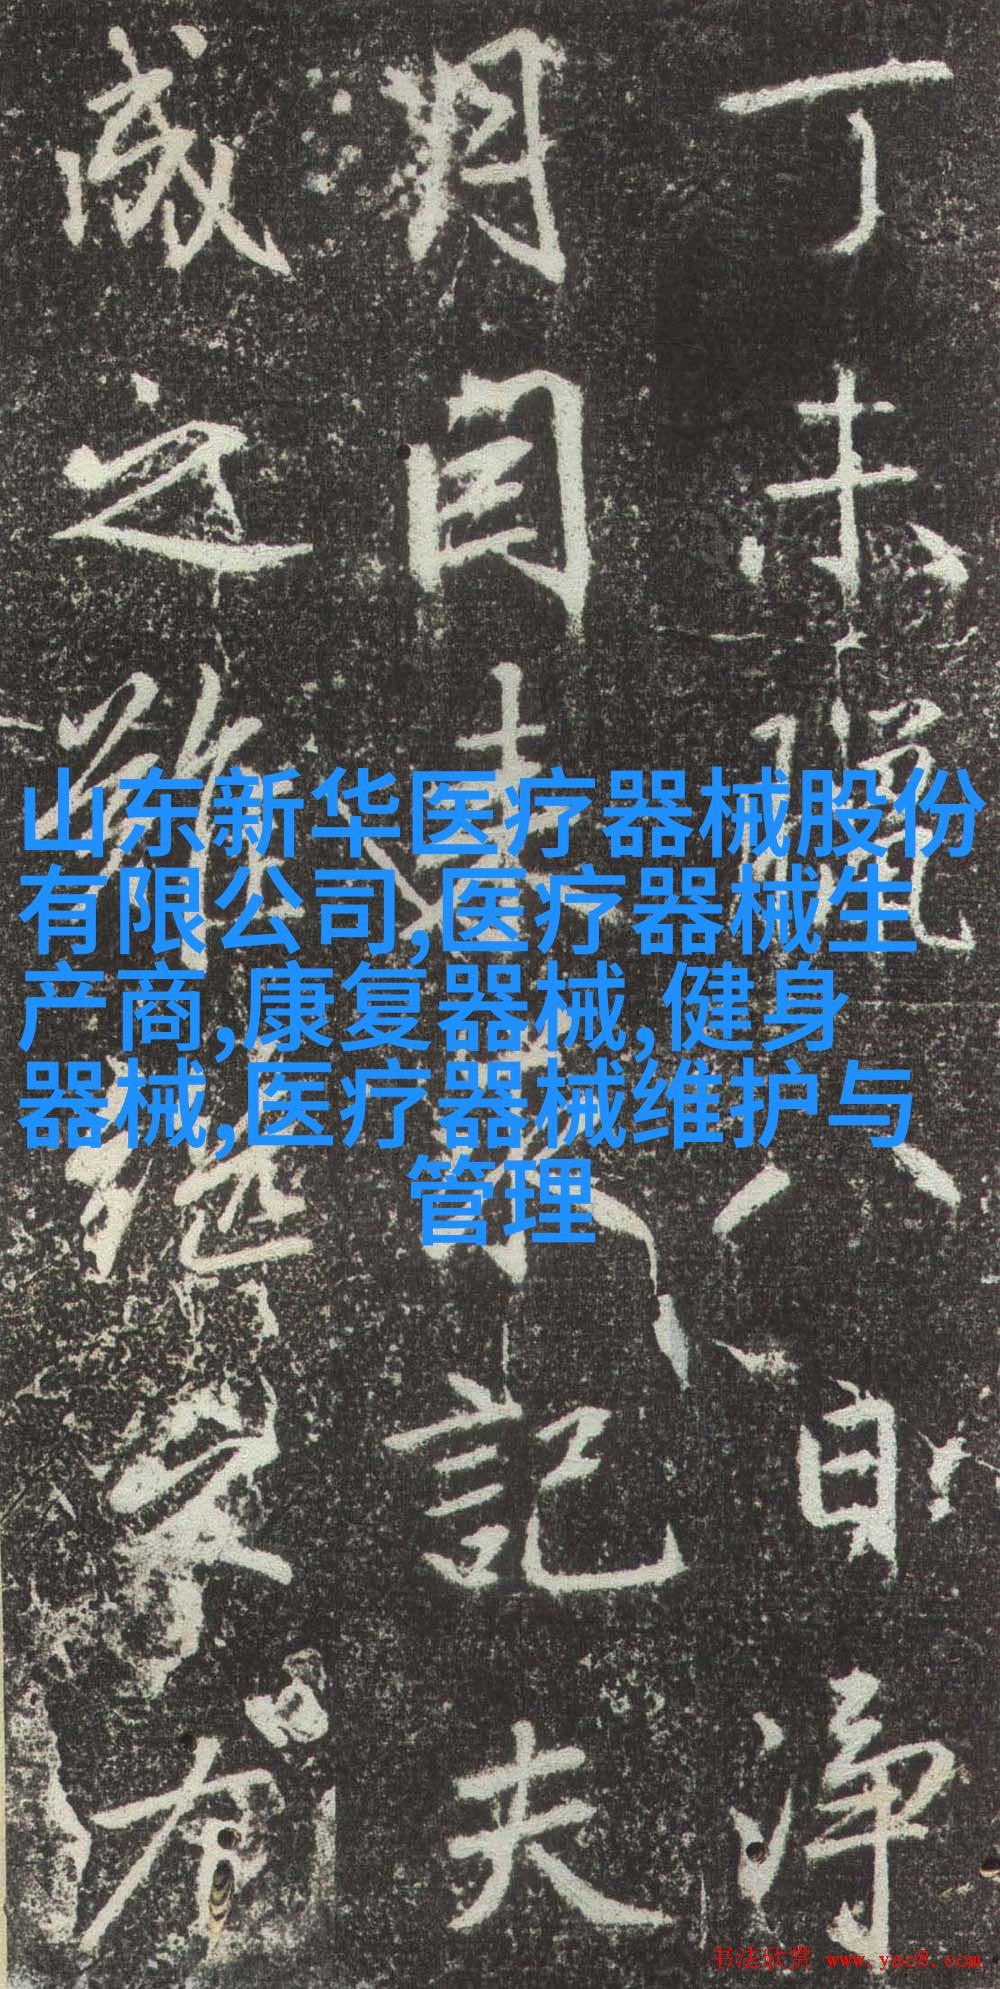 山东新华医疗器械股份
有限公司,医疗器械生
产商,康复器械,健身
器械,医疗器械维护与
管理
丁未八日净
月求記夫
成之
书法欣赏 www.yac8.com